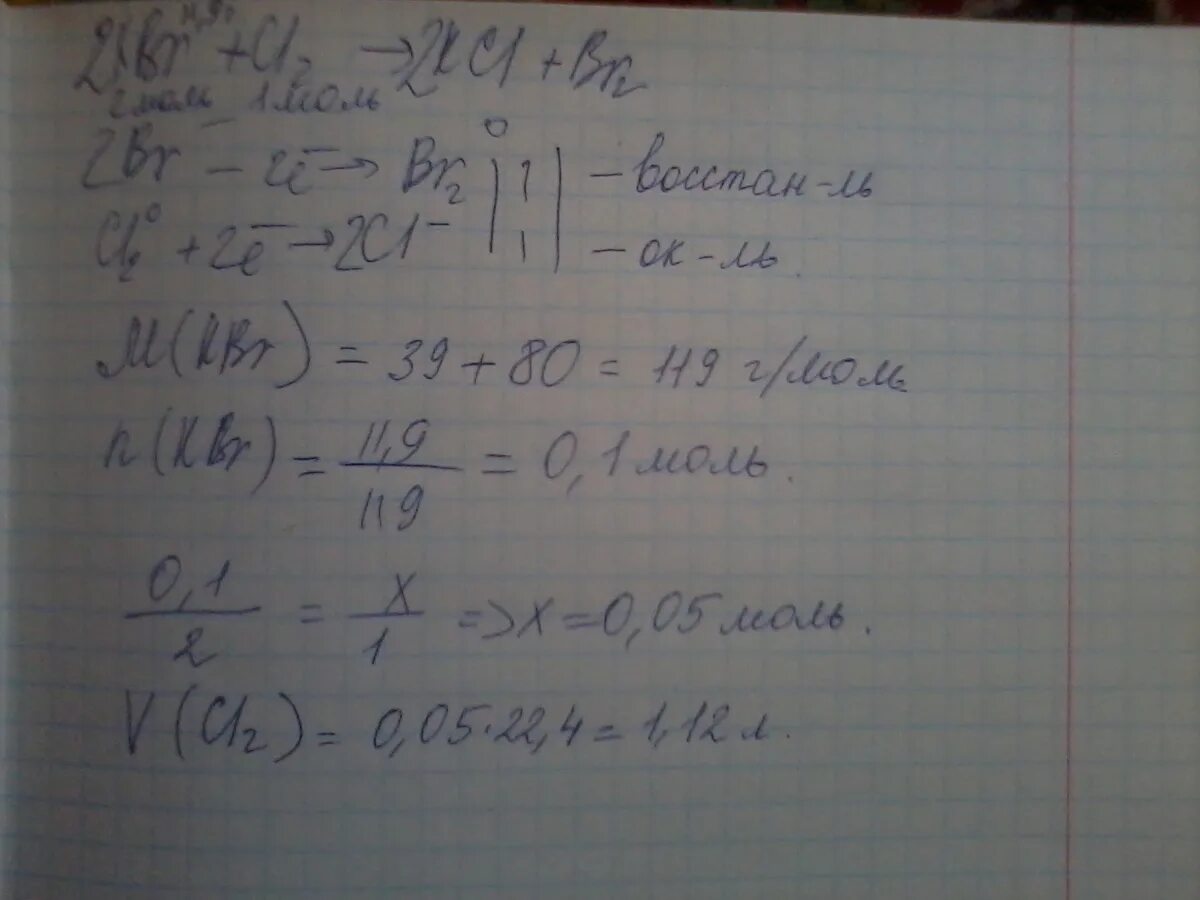 11,9г
2KBr + Cl₂ → 2KCl + Br₂
2моль 1моль
2Br⁻ – 2e⁻ → Br₂⁰ | 1 | – восстан-ль
Cl₂⁰ + 2e⁻ → 2Cl⁻ | 1 | – ок-ль.
M(KBr) = 39 + 80 = 119 г/моль
n(KBr) = 11,9/119 = 0,1 моль.
0,1/2 = x/1 => x = 0,05 моль.
V(Cl₂) = 0,05·22,4 = 1,12 л.